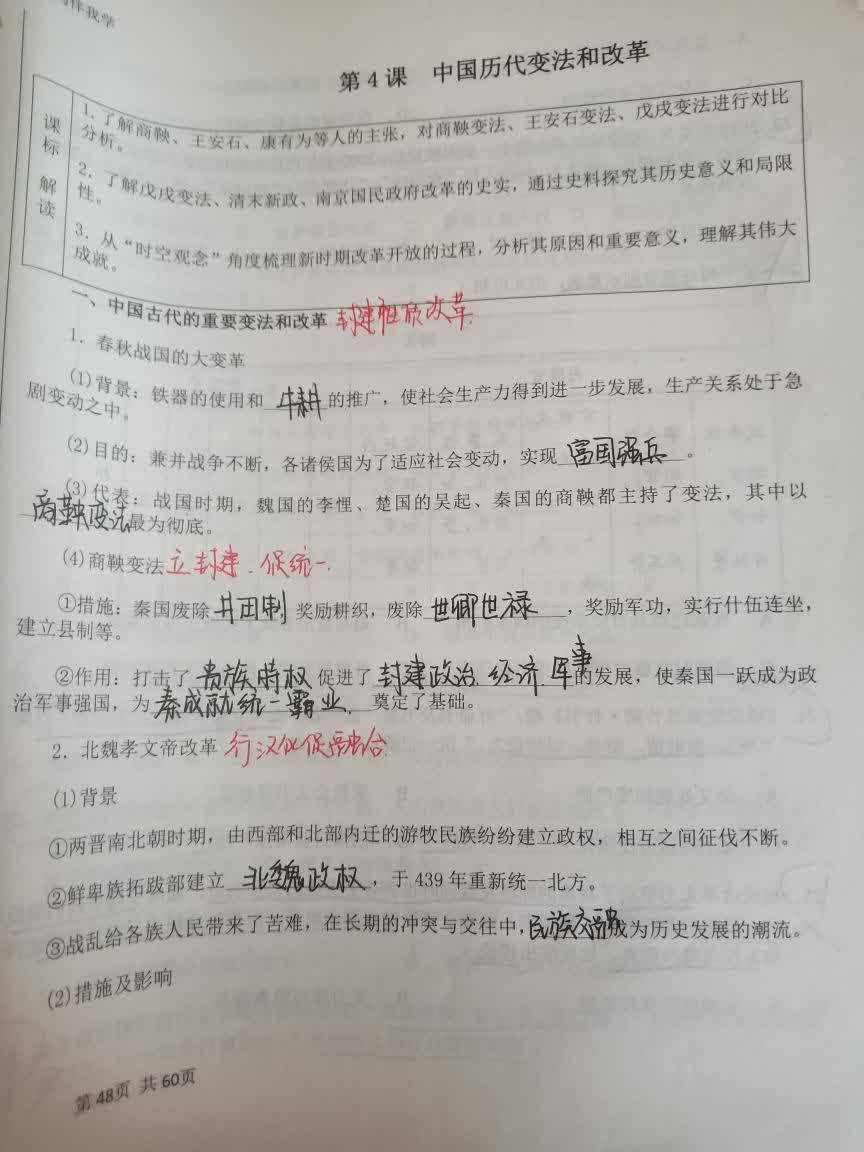 伴我学
第4课 中国历代变法和改革
课标 解读
1.了解商鞅、王安石、康有为等人的主张，对商鞅变法、王安石变法、戊戌变法进行对比
分析。
2.了解戊戌变法、清末新政、南京国民政府改革的史实，通过史料探究其历史意义和局限
性。
3.从“时空观念”角度梳理新时期改革开放的过程，分析其原因和重要意义，理解其伟大
成就。
一、中国古代的重要变法和改革 封建性质改革.
1.春秋战国的大变革
(1)背景：铁器的使用和 牛耕 的推广，使社会生产力得到进一步发展，生产关系处于急
剧变动之中。
(2)目的：兼并战争不断，各诸侯国为了适应社会变动，实现 富国强兵 。
(3)代表：战国时期，魏国的李悝、楚国的吴起、秦国的商鞅都主持了变法，其中以
商鞅变法最为彻底。
(4)商鞅变法 立封建、促统一.
①措施：秦国废除 井田制 奖励耕织，废除 世卿世禄 ，奖励军功，实行什伍连坐，
建立县制等。
②作用：打击了 贵族特权 促进了 封建政治、经济、军事 的发展，使秦国一跃成为政
治军事强国，为 秦成就统一霸业、 奠定了基础。
2.北魏孝文帝改革 行汉化促融合.
(1)背景
①两晋南北朝时期，由西部和北部内迁的游牧民族纷纷建立政权，相互之间征伐不断。
②鲜卑族拓跋部建立 北魏政权 ，于439年重新统一北方。
③战乱给各族人民带来了苦难，在长期的冲突与交往中，民族交融成为历史发展的潮流。
(2)措施及影响
第48页 共60页